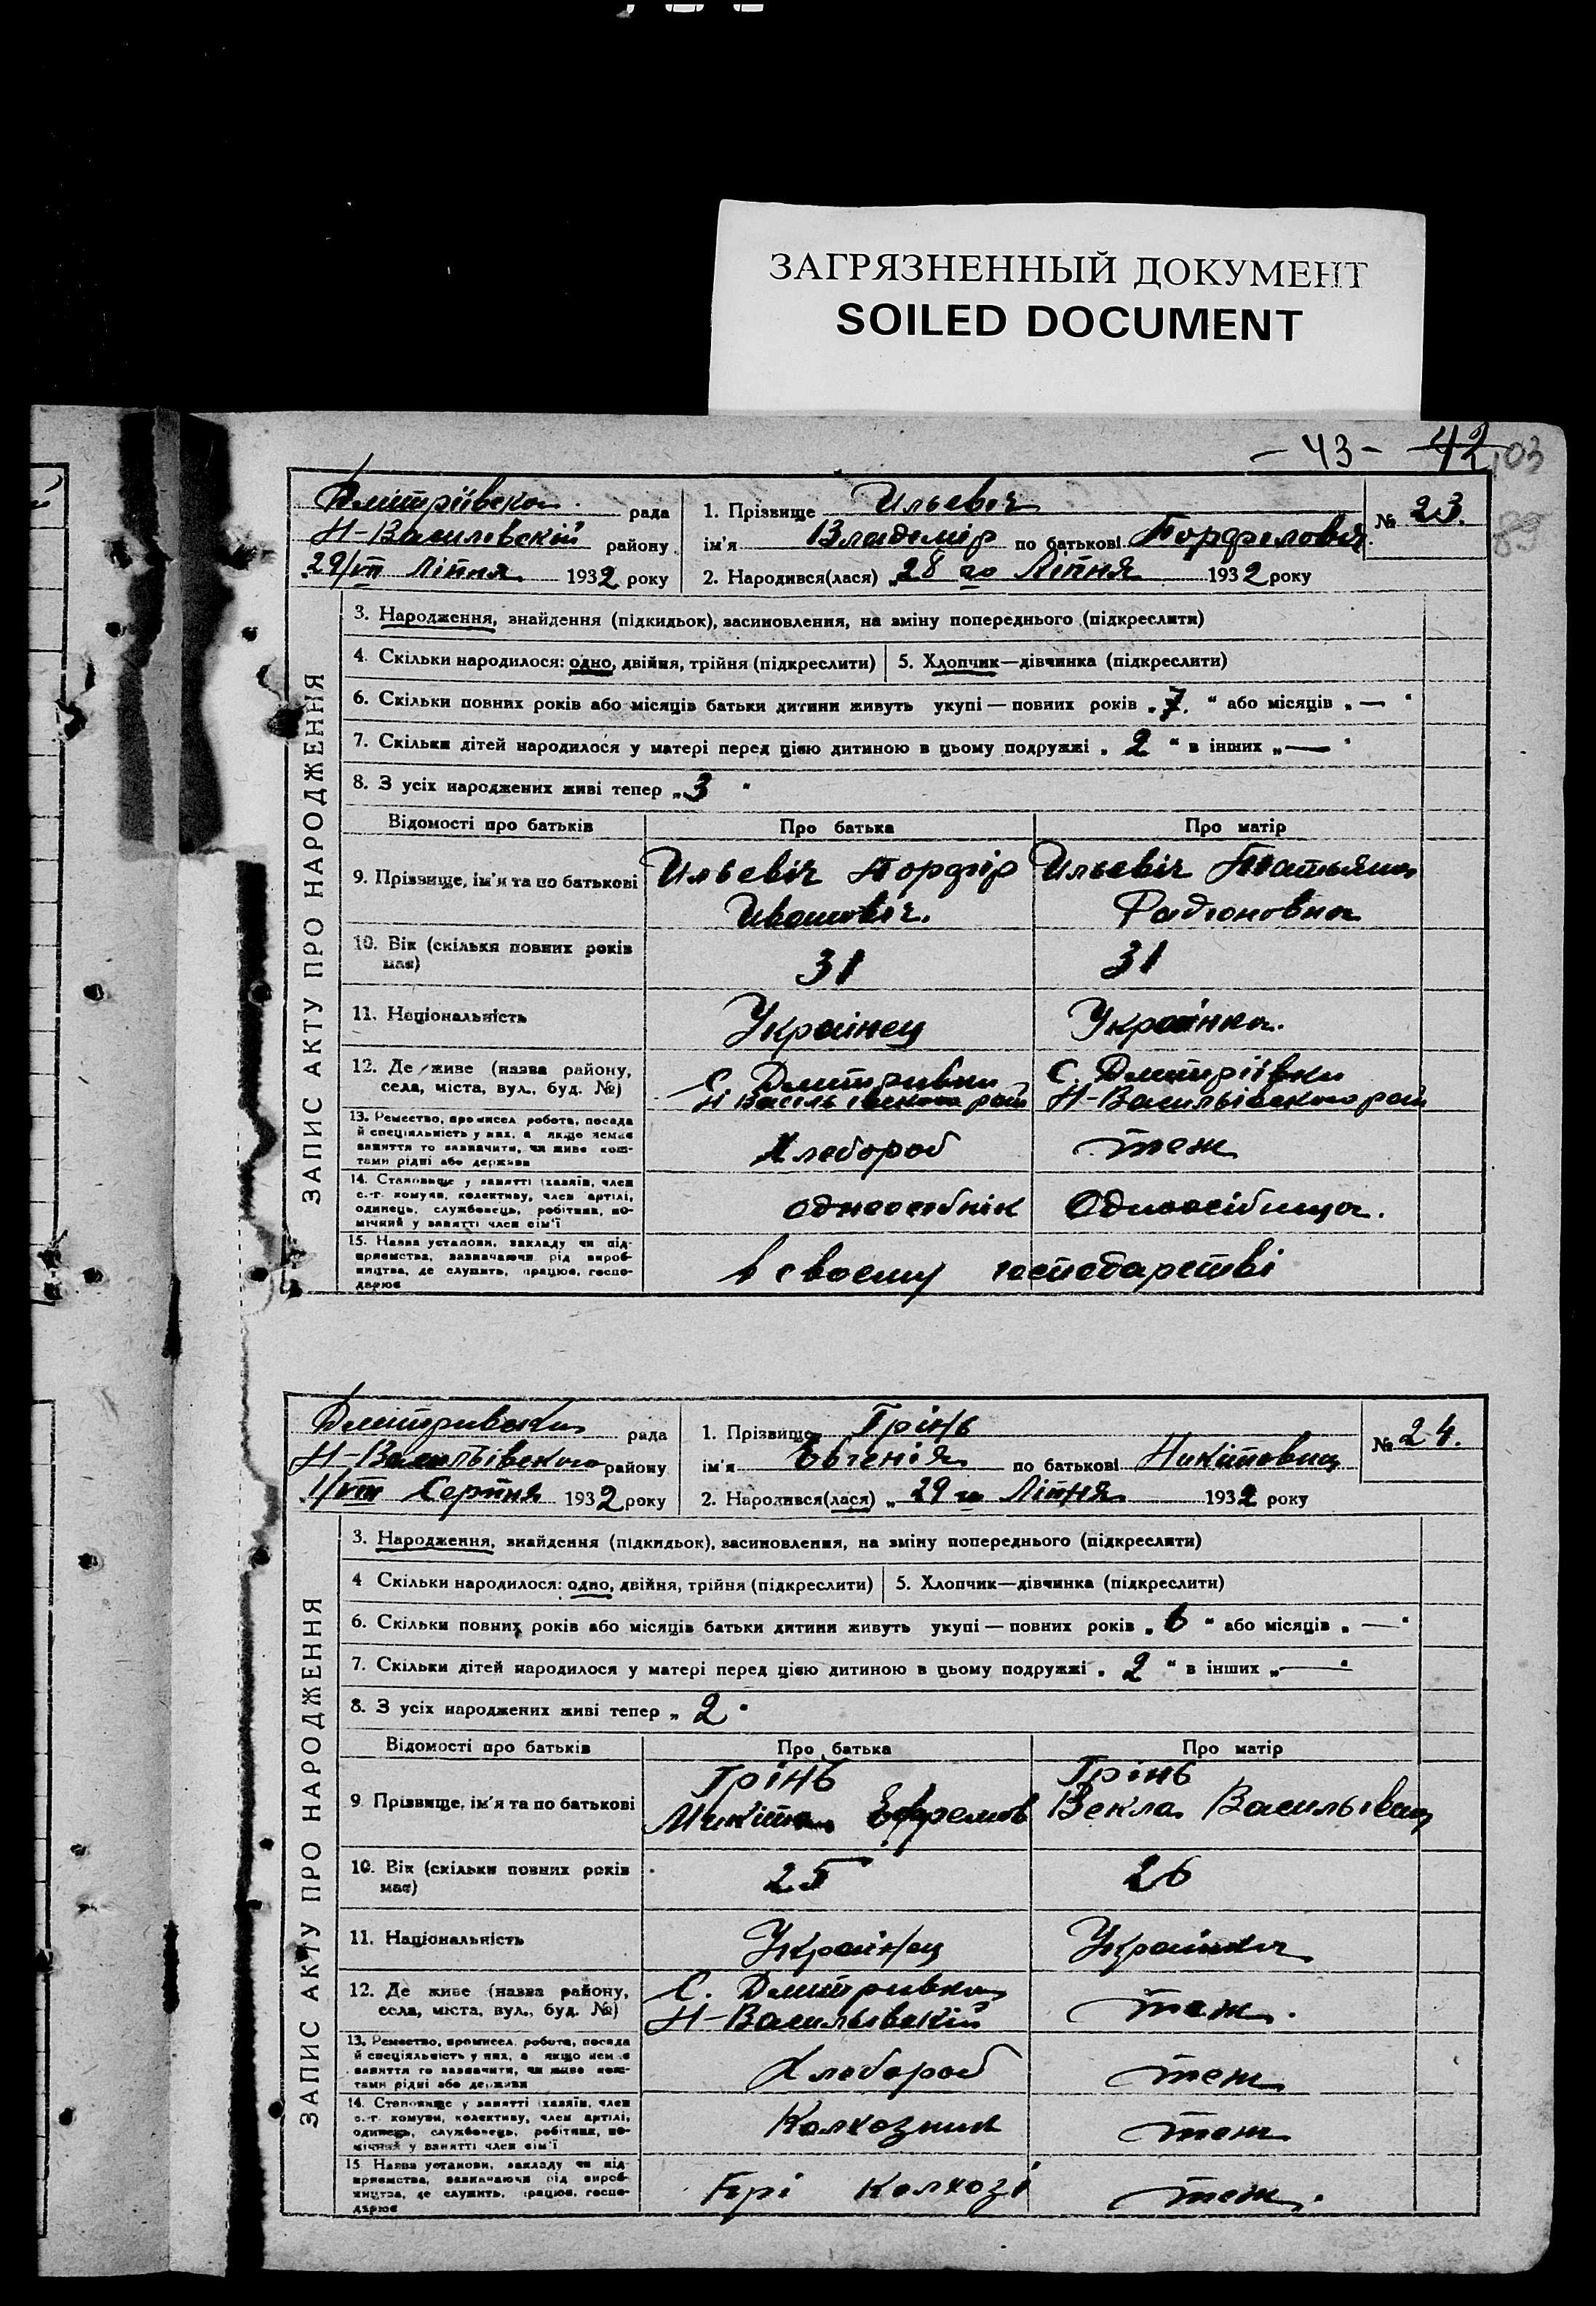 ЗАГРЯЗНЕННЫЙ ДОКУМЕНТ
SOILED DOCUMENT
— 43 — 42 103
89
ЗАПИС АКТУ ПРО НАРОДЖЕННЯ
Дмитріівскоі рада
Н-Василевскій району
29/VII Літня 1932 року
1. Прізвище Ильевіч
ім'я Владимір по батькові Порфилович
№ 23.
2. Народився(лася) „28 го Літня 1932 року
3. Народження, знайдення (підкидьок), засиновлення, на зміну попереднього (підкреслити)
4. Скільки народилося: одно, двійня, трійня (підкреслити) 5. Хлопчик—дівчинка (підкреслити)
6. Скільки повних років або місяців батьки дитини живуть укупі — повних років „7." або місяців „—"
7. Скільки дітей народилося у матері перед цією дитиною в цьому подружжі „2" в інших „—"
8. З усіх народжених живі тепер „3"
Відомості про батьків Про батька Про матір
9. Прізвище, ім'я та по батькові Ильевіч Порфір Ильевіч Татьяна
Иванович. Радионовна
10. Вік (скільки повних років
має) 31 31
11. Національність Украінец Украінка.
12. Де живе (назва району,
села, міста, вул., буд. №) С. Дмитривки С. Дмитріівки
Н Васільівского рай Н-Васильівского рай
13. Ремество, промисел, робота, посада
й спеціяльність у них, а якщо немає
заняття то зазначити, чи живе кош-
тами рідні або держави Хлебороб теж
14. Становище у занятті (хазяїн, член
с.-г. комуни, колективу, член артілі,
одинець, службовець, робітник, по-
мічний у занятті член сім'ї одноосібнік Одноосібница.
15. Назва установи, закладу чи під-
приємства, зазначаючи рід вироб-
ництва, де служить, працює, госпо-
дарює в своему господарстві
ЗАПИС АКТУ ПРО НАРОДЖЕННЯ
Дмитривска рада
Н-Васильівского району
1/VIII Серпня 1932 року
1. Прізвище Грінь
ім'я Евгенія по батькові Никітовна
№ 24.
2. Народився(лася) „29 го Літня 1932 року
3. Народження, знайдення (підкидьок), засиновлення, на зміну попереднього (підкреслити)
4 Скільки народилося: одно, двійня, трійня (підкреслити) 5. Хлопчик—дівчинка (підкреслити)
6. Скільки повних років або місяців батьки дитини живуть укупі — повних років „6" або місяців „—"
7. Скільки дітей народилося у матері перед цією дитиною в цьому подружжі „2" в інших „—"
8. З усіх народжених живі тепер „2"
Відомості про батьків Про батька Про матір
Грінь Грінь
9 Прізвище, ім'я та по батькові Микита Ефремов Векла Васильівна
10. Вік (скільки повних років
має) 25 26
11. Національність Украінец Украінка
12. Де живе (назва району,
села, міста, вул., буд. №) С. Дмитривка теж.
Н-Васильівскій
13. Ремество, промисел, робота, посада
й спеціяльність у них, а якщо немає
заняття то зазначити, чи живе кош-
тами рідні або держави Хлебороб теж
14. Становище у занятті (хазяїн, член
с.-г. комуни, колективу, член артілі,
одинець, службовець, робітник, по-
мічний у занятті член сім'ї Колхозник теж
15 Назва установи, закладу чи під-
приємства, зазначаючи рід вироб-
ництва, де служить, працює, госпо-
дарює Прі колхозі теж.